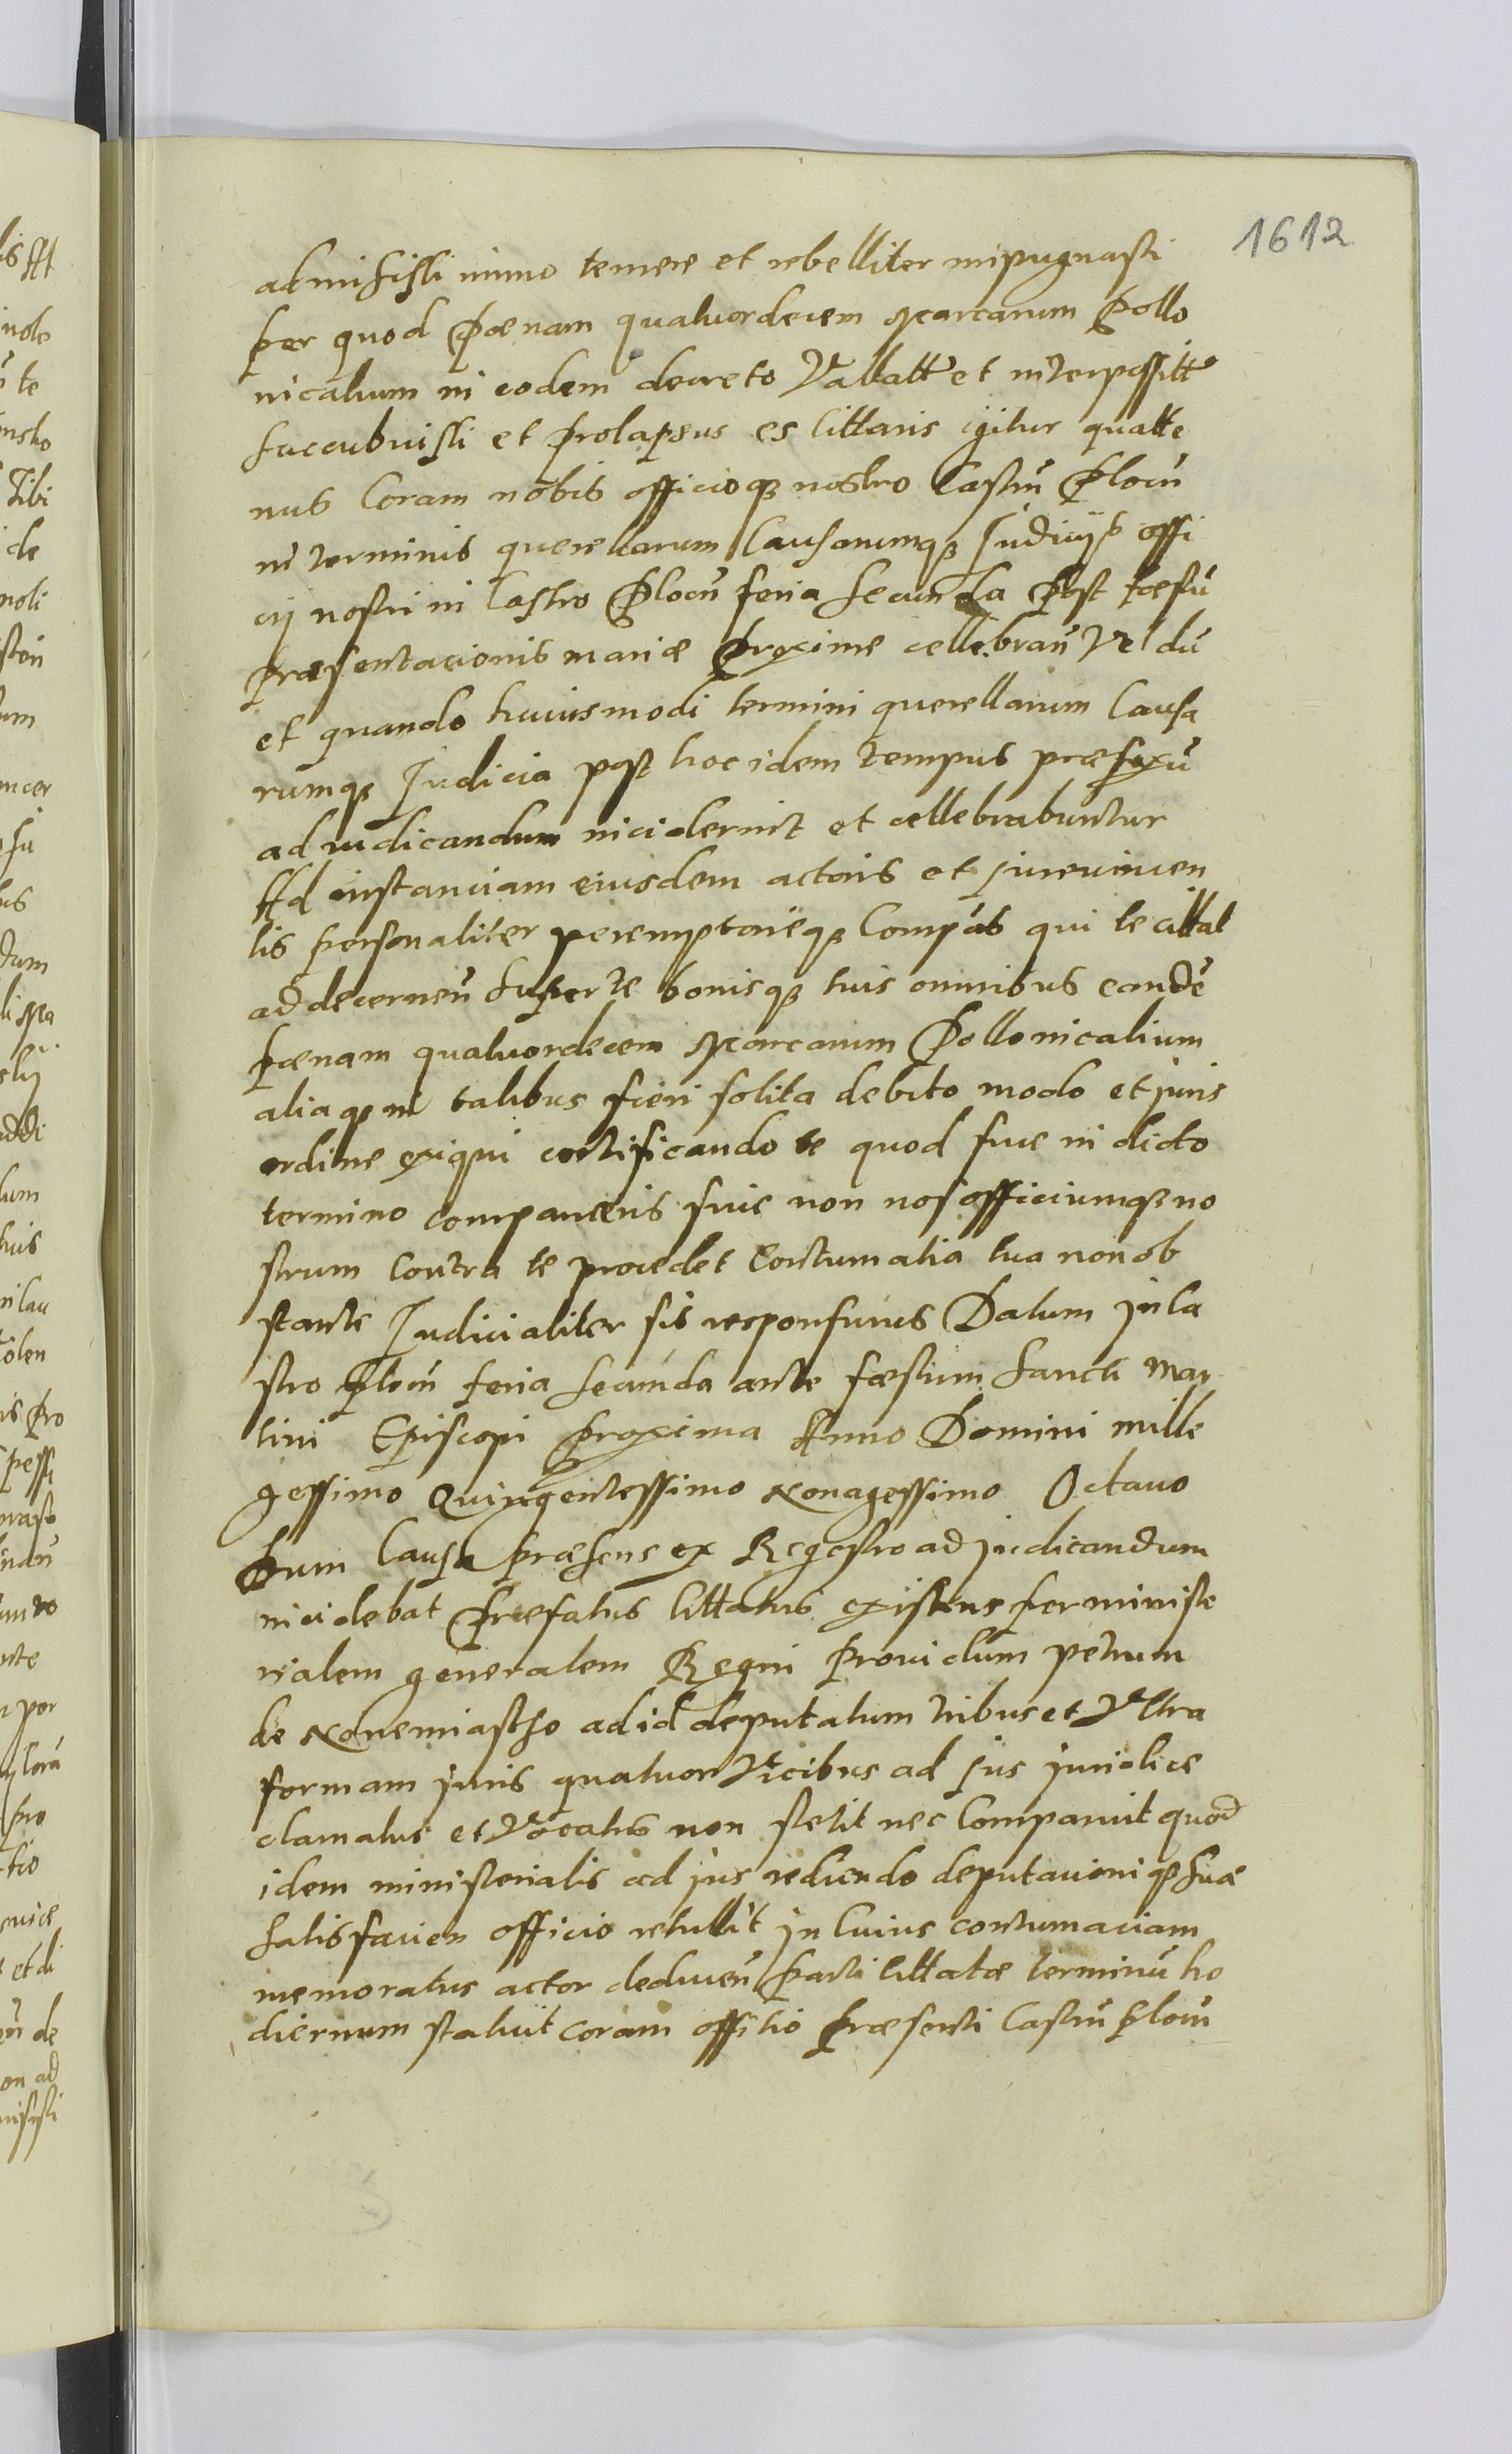 1612
admisisti immo temere et rebelliter impugnasti
per quod Poenam quatuordecem Marcarum Pollo
nicalium in eodem decreto Vallatt et interpossitt
succubuisti et prolapsus es Cittaris igitur quatte
nus Coram nobis officioq nostro Castrn Plocn
in terminis querellarum Causarumq Judicijs offi
cij nostri in Castro Plocn feria secunda Post foestu
Praesentacionis mariae Proxime cellebran Vel du
et quando huiusmodi termini querellarum Causa
rumq Judicia post hoc idem tempus praefixu
ad iudicandum inciderint et cellebrabuntur
Ad instanciam eiusdem actoris et jurevincen
tis personaliter peremptorieq Compas qui te cittat
ad decernen super te bonisq tuis omnibus eande
poenam quatuordecem Marcarum Pollonicalium
aliaq in talibus fieri solita debito modo et juris
ordine exiqui certificando te quod sive in dicto
termino comparueris sive non nos officiumq no
strum Contra te procedet Contumatia tua non ob
stante Judicialiter sis responsurus Datum in Ca
stro Plocn feria secunda ante foestum Sancti Mar
tini Episcopi proxima Anno Domini mille
gessimo Quingentessimo Nonagessimo Octavo
Dum Causa praesens ex Regestro ad judicandum
incidebat Praefatus Cittatus existens per ministe
rialem generalem Regni Providum petrum
de Novemiastho ad id deputatum tribus et Ultra
formam juris quatuor Vicibus ad jus juridice
clamatus et Vocatus non stetit nec Comparuit quod
idem ministerialis ad jus rediendo deputacioniq suae
satisfacien officio retullit in Cuius contumaciam
memoratus actor deducen parti Cittatae terminu ho
diernum statuit coram offitio Praesenti Castrn Plocn